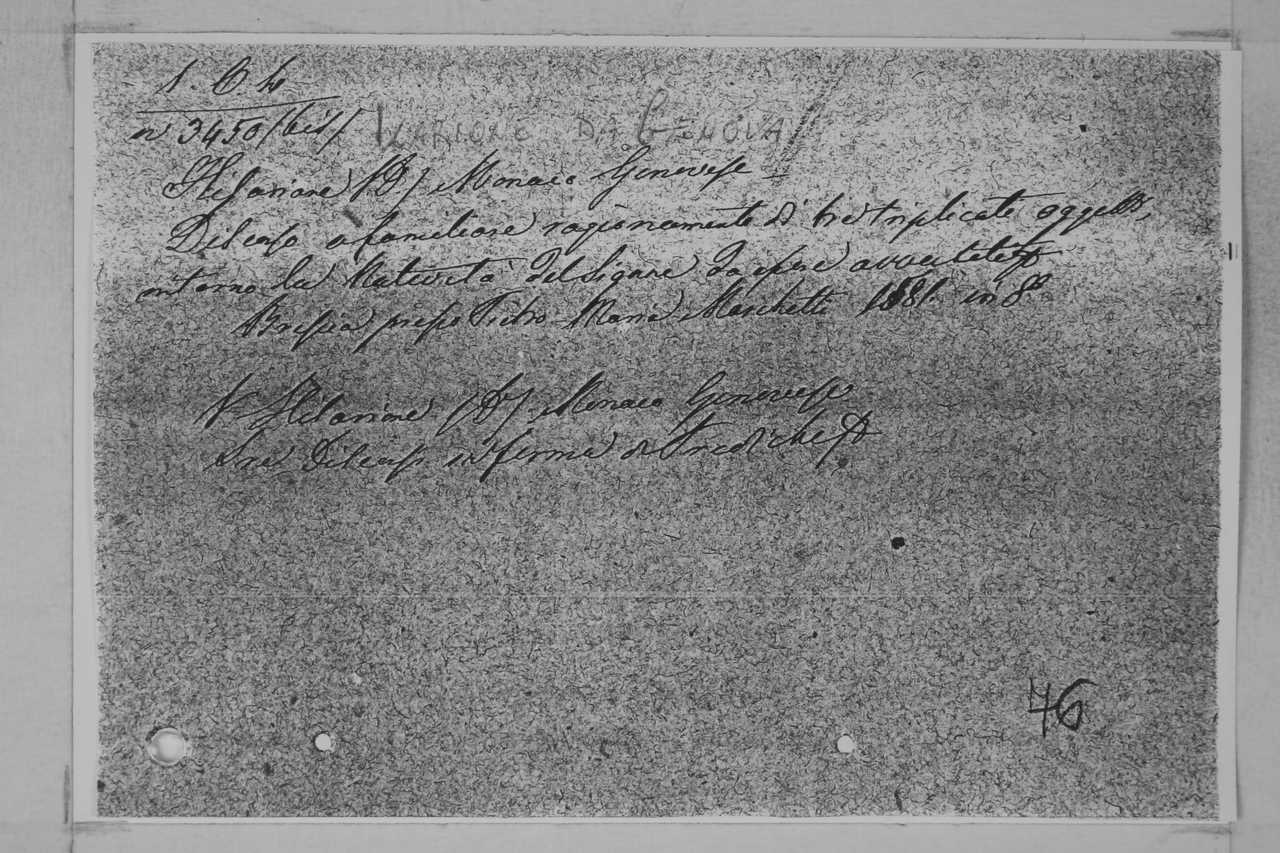 1. C. 4
n 3450 /bis/
ILARIONE DA GENOVA
Hilarione /D/ Monaco Genovese
Discorso o familiare ragionamento di tre triplicati oggetti,
intorno la Natività del Signore da essere avvertito
Brescia presso Pietro Maria Marchetti 1581. in 8º
Hilarione /D/ Monaco Genovese
Discorsi in forma di Prediche
46